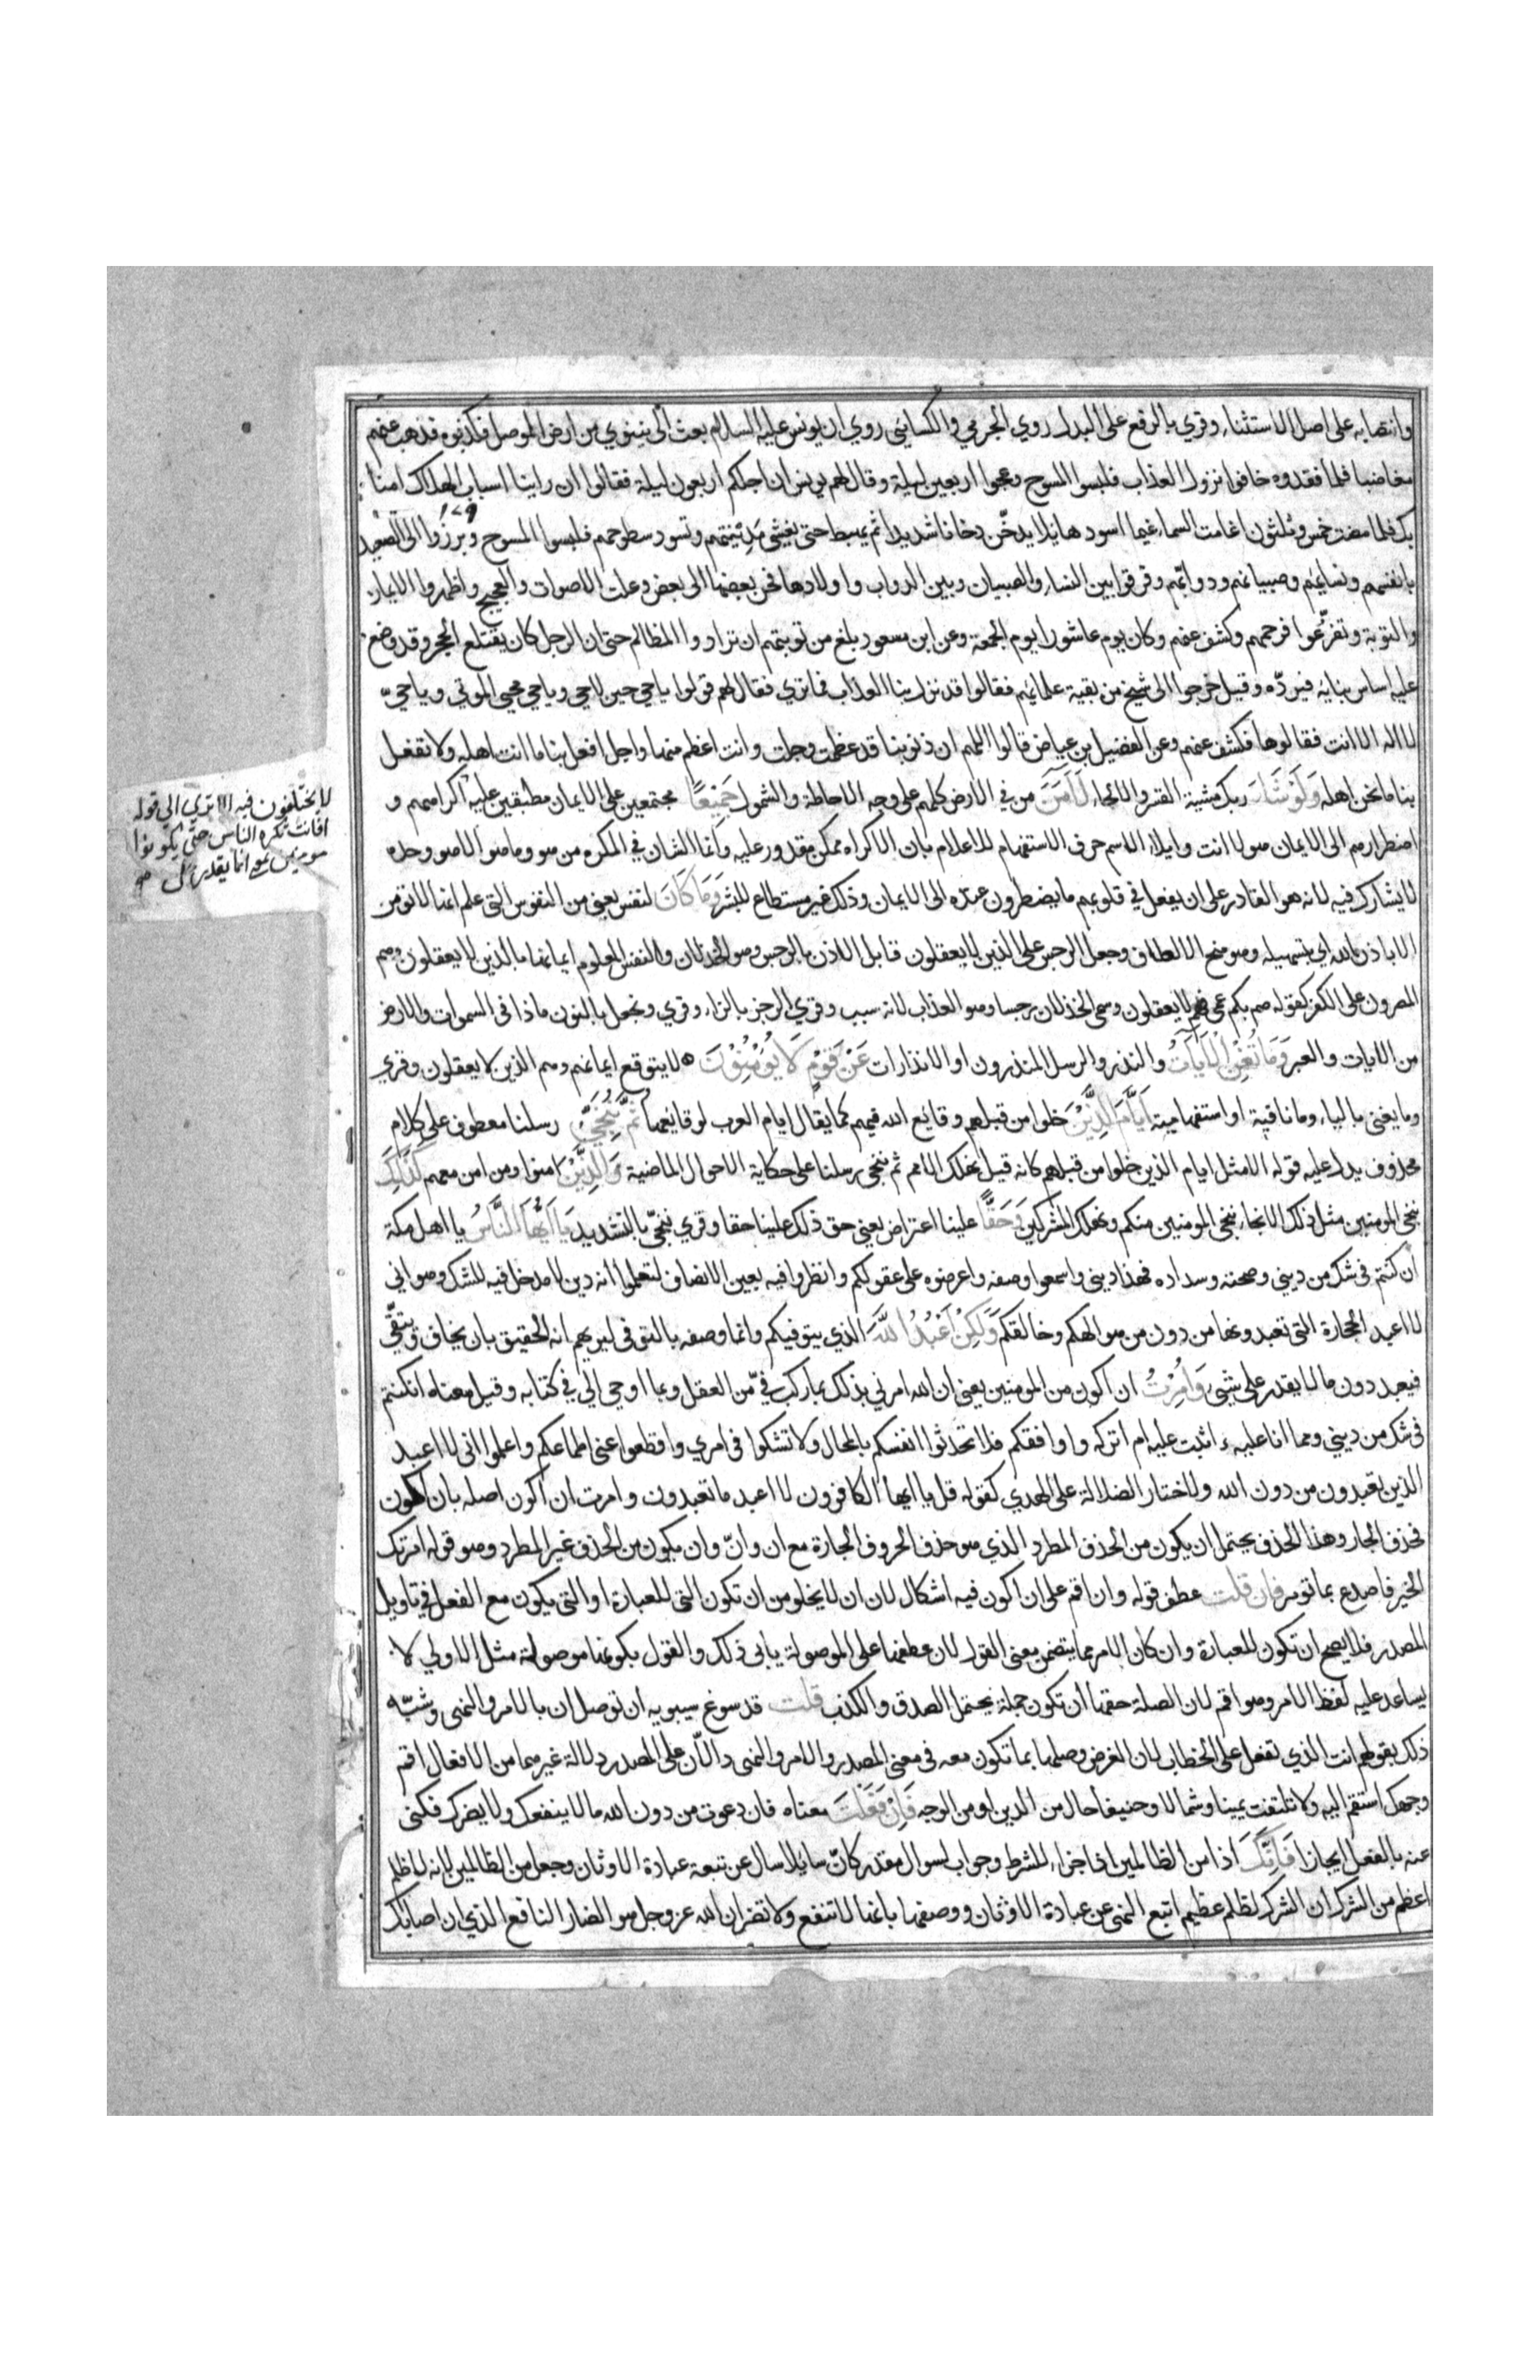 وانتصابه على اصل الاستثناء وقري بالرفع على البدل روي الجرمي والكسائي روي ان يونس عليه السلام بعث الى نينوي من ارض الموصل فكذبوه فذهب عنهم
مغاضبا فلما فقدوه خافوا نزول العذاب فلبسوا المسوح وعجوا اربعين ليلة وقال لهم يونس ان اجلكم اربعون ليلة فقالوا ان راينا اسباب الهلاك امنا
بك فلما مضت خمس وثلثون اغامت السماء غيما اسود هايلا يدخّن دخانا شديدا ثم يهبط حتى يغشى مدينتهم وتسود سطوحهم فلبسوا المسوح وبرزوا الى الصعيد
١٧٩
بانفسهم ونسايهم وصبيانهم ودوابّهم وفرقوا بين النساء والصبيان وبين الدواب واولادها فحن بعضها الى بعض وعلت الاصوات والعجيج واظهروا الايمان
والتوبة وتضرّعوا فرحمهم وكشف عنهم وكان يوم عاشورا يوم الجمعة وعن ابن مسعود بلغ من توبتهم ان ترادوا المظالم حتى ان الرجل كان يقتلع الحجر وقد وضع
عليه اساس بنايه فيردّه وقيل خرجوا الى شيخ من بقية علمايهم فقالوا قد نزل بنا العذاب فما تري فقال لهم قولوا يا حي حين لا حي ويا حي محيي الموتي ويا حيّ
لا اله الا انت فقالوها فكشف عنهم وعن الفضيل بن عياض قالوا اللهم ان ذنوبنا قد عظمت وجلت وانت اعظم منها واجل افعل بنا ما انت اهله ولا تفعل
بنا ما نحن اهله وَلَوْ شَاءَ ربك مشية القسر والالجاء لَآمَنَ من في الارض كلهم على وجه الاحاطة والشمول جَمِيْعًا مجتمعين على الايمان مطبقين عليه اكراههم و
لا يختلفون فيه الا تري الى قوله
افانت تكره الناس حتى يكونوا
مومنين يعني انما يقدر على
اضطرارهم الى الايمان هو لا انت وايلاء الاسم حرف الاستفهام للاعلام بان الاكراه ممكن مقدور عليه وانما الشان في المكره من هو وما هو الا هو وحده
لا يشارك فيه لانه هو القادر على ان يفعل في قلوبهم ما يضطرون عنده الى الايمان وذلك غير مستطاع للبشر وَمَا كَانَ لنفس يعني من النفوس التي علم انها لا تومن
الا باذن الله اي بتسهيله وهو منح الالطاف وجعل الرجس على الذين لا يعقلون قابل الاذن بالرجس وهو الخذلان والنفس المعلوم ايمانها بالذين لا يعقلون وهم
المصرون على الكفر كقوله صم بكم عمي فهم لا يعقلون وسمى الخذلان رجسا وهو العذاب لانه سببه وقري الرجز بالزاء وقري ونجعل بالنون ماذا في السموات والارض
من الايات والعبر وَمَا تُغْنِ الْآيَاتُ والنذر والرسل المنذرون او الانذارات عَنْ قَوْمٍ لَا يُوْمِنُوْنَ ه لا يتوقع ايمانهم وهم الذين لا يعقلون وقري
وما يغني بالياء وما نافية او استفهامية اَيَّامَ الَّذِيْنَ خلوا من قبلهم وقايع الله فيهم كما يقال ايام العرب لوقايعها ثُمَّ نُنَجِّيْ رسلنا معطوف على كلام
محذوف يدل عليه قوله الا مثل ايام الذين خلوا من قبلهم كانه قيل نهلك الامم ثم ننجي رسلنا على حكاية الاحوال الماضية وَالَّذِيْنَ امنوا ومن امن معهم كَذَلِكَ
ننجي المومنين مثل ذلك الانجاء ننجي المومنين منكم ونهلك المشركين وَحَقًّا علينا اعتراض يعني حق ذلك علينا حقا وقري ننجّي بالتشديد يَا اَيُّهَا النَّاسُ يا اهل مكة
ان كنتم في شك من ديني وصحته وسداده فهذا ديني واسمعوا وصفه واعرضوه على عقولكم وانظروا فيه بعين الانصاف لتعلموا انه دين لا مدخل فيه للشك وهو اني
لا اعبد الحجارة التي تعبدونها من دون من هو الهكم وخالقكم وَلَكِنْ اَعْبُدُ اللهَ الذي يتوفيكم وانما وصفه بالتوفي ليريهم انه الحقيق بان يخاف ويتقّي
فيعبد دون ما لا يقدر على شيء وَاُمِرْتُ ان اكون من المومنين يعني ان الله امرني بذلك بما ركب فيّ من العقل وبما اوحي الي في كتابه وقيل معناه ان كنتم
في شك من ديني ومما انا عليه ءاثبت عليه ام اتركه واوافقكم فلا تحدثوا انفسكم بالمحال ولا تشكوا في امري واقطعوا عني اطماعكم واعلموا اني لا اعبد
الذين تعبدون من دون الله ولا اختار الضلالة على الهدي كقوله قل يا ايها الكافرون لا اعبد ما تعبدون وامرت ان اكون اصله بان اكون
فحذف الجار وهذا الحذف يحتمل ان يكون من الحذف المطرد الذي هو حذف الحروف الجارة مع ان وانّ وان يكون من الحذف غير المطرد وهو قوله امرتك
الخير فاصدع بما تومر فان قلت عطف قوله وان اقم على ان اكون فيه اشكال لان ان لا يخلو من ان تكون التي للعبارة او التي يكون مع الفعل في تاويل
المصدر فلا يصح ان تكون للعبارة وان كان الامر مما يتضمن معنى القول لان عطفها على الموصولة يابى ذلك والقول بكونها موصولة مثل الاولي لا
يساعد عليه لفظ الامر وهو اقم لان الصلة حقها ان تكون جملة يحتمل الصدق والكذب قلت قد سوغ سيبويه ان توصل ان بالامر والنهي وشبّه
ذلك بقولهم انت الذي تفعل على الخطاب لان الغرض وصلها بما تكون معه في معنى المصدر والامر والنهي دالّان على المصدر دلالة غيرهما من الافعال اقم
وجهك استقم اليه ولا تلتفت يمينا وشمالا وحنيفا حال من الدين او من الوجه فَاِنْ فَعَلْتَ معناه فان دعوت من دون الله ما لا ينفعك ولا يضرك فكني
عنه بالفعل ايجازا فَاِنَّكَ اذا من الظالمين اذا جزاء للشرط وجواب لسوال مقدر كانّ سايلا سال عن تبعة عبادة الاوثان وجعل من الظالمين لانه لا ظلم
اعظم من الشرك ان الشرك لظلم عظيم اتبع النهي عن عبادة الاوثان ووصفها بانها لا تنفع ولا تضر ان الله عز وجل هو الضار النافع الذي ان اصابك